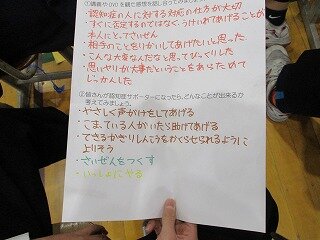 ①講義やDVDを観て感想を話し合ってみましょう
・認知症の人に対する対応の仕方が大切
・すぐに否定するのではなくうけいれてあげることが
本人にとってさいぜん
・相手のことをりかいしてあげたいと思った
・こんな大変なんだなと思ってびっくりした
・思いやりが大事だということをあらためて
じっかんした
②皆さんが認知症サポーターになったら、どんなことが出来るか
考えてみましょう。
・やさしく声がけをしてあげる
・こまっている人がいたら助けてあげる
・できるかぎりしんこうをおくらせられるように
よりそう
・さいぜんをつくす
・いっしょにやる